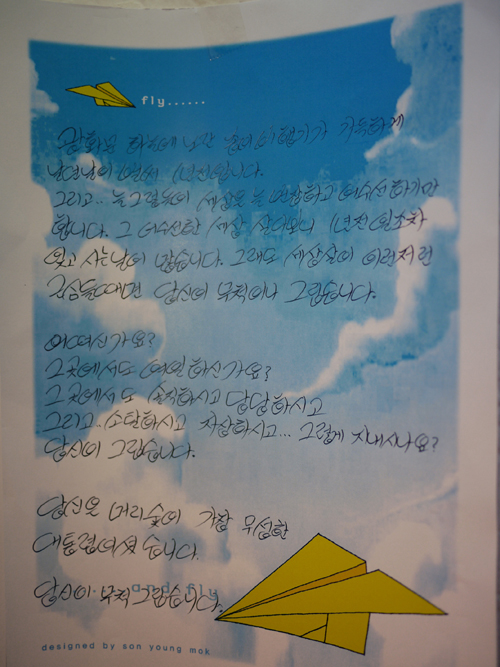 fly......
광화문 하늘에 노란 종이비행기가 가득하게
날던 날이 벌써 1년전입니다.
그리고.. 늘 그렇듯이 세상은 늘 하고 어수선하기만
합니다. 그 어수선한 세상 살다보니 1년전 일조차
잊고 사는 날이 많습니다. 그래도 세상살이 이런저런
근심들 때면 당신이 무척이나 그립습니다.
어떠신가요?
그곳에서도 여전하신가요?
그곳에서도 솔직하시고 당당하시고
그리고.. 소탈하시고 자상하시고... 그렇게 지내시나요?
당신이 그립습니다.
당신은 머리숱이 가장 무성한
대통령이셨습니다.
and fly
당신이 무척 그립습니다.
designed by son young mok